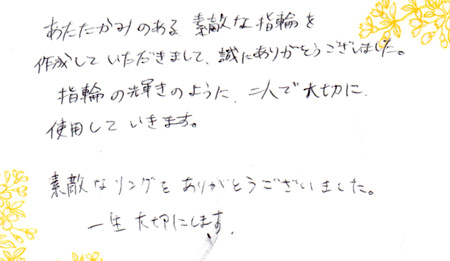 あたたかみのある 素敵な指輪を
作成していただきまして、誠にありがとうございました。
指輪の輝きのように、二人で大切に
使用していきます。
素敵なリングをありがとうございました。
一生大切にします。